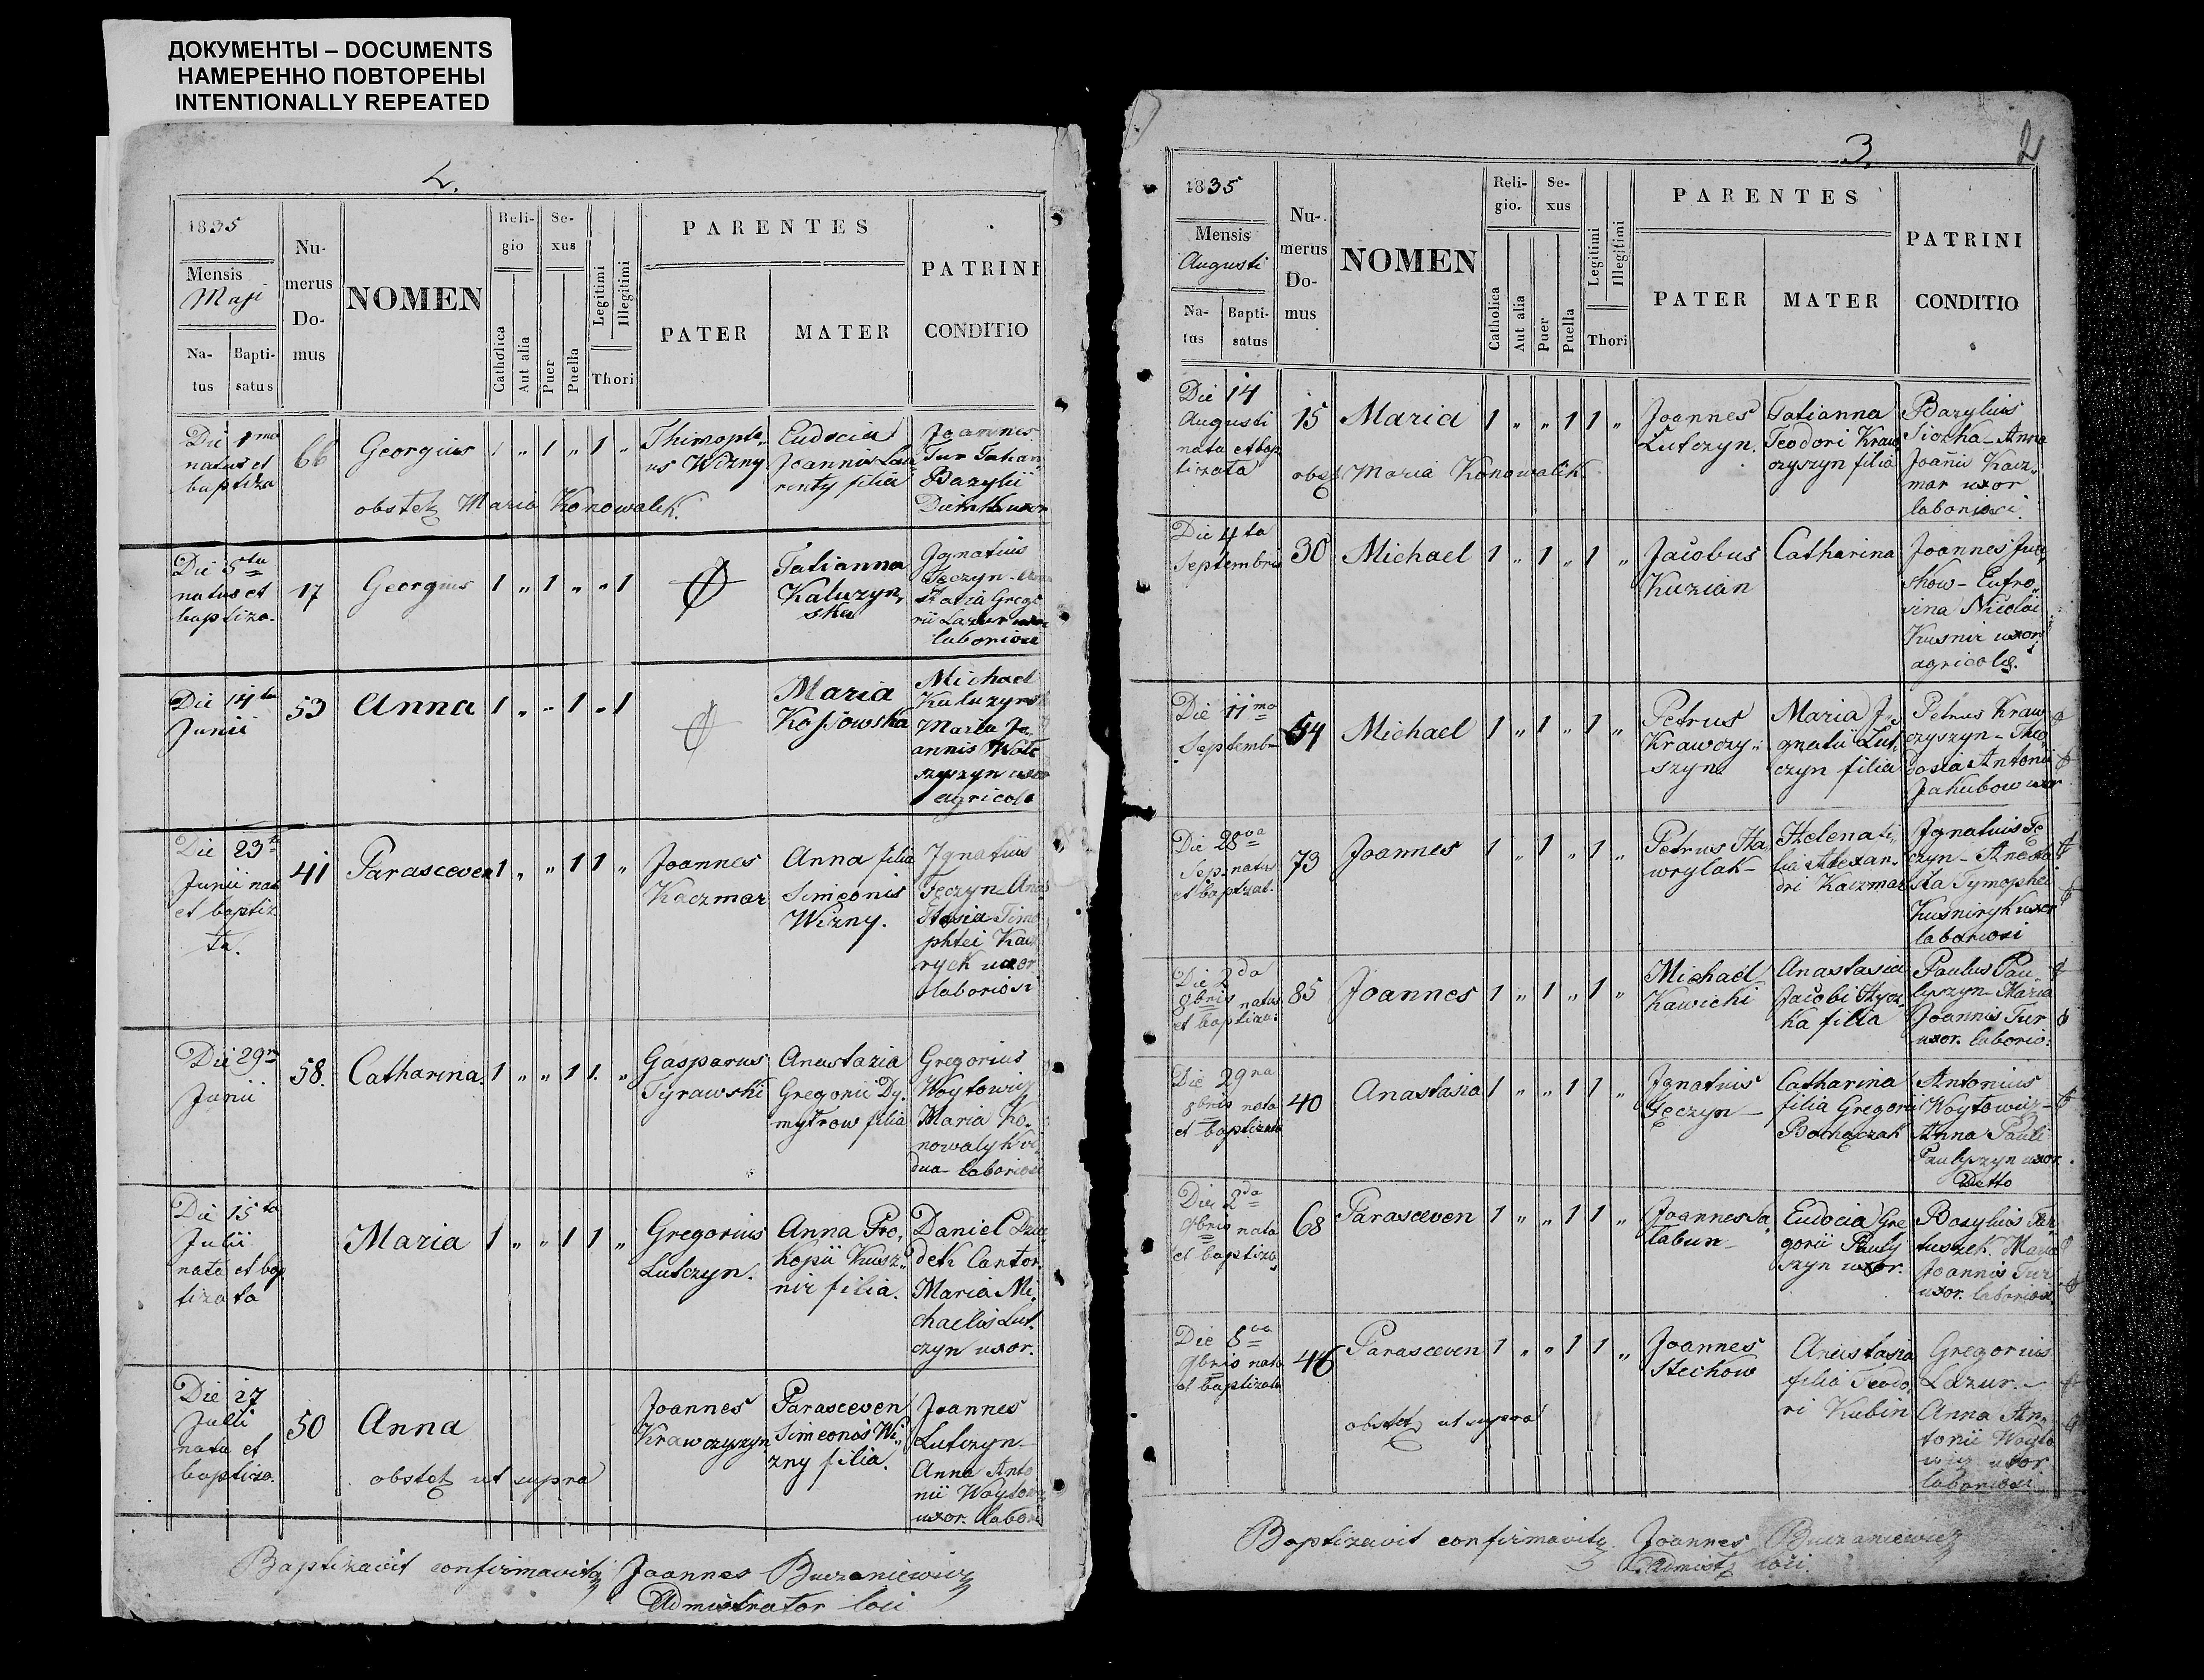 ДОКУМЕНТЫ – DOCUMENTS
НАМЕРЕННО ПОВТОРЕНЫ
INTENTIONALLY REPEATED
2.
1835
Mensis
Maji
Na-
tus
Bapti-
satus
Nu-
merus
Do-
mus
NOMEN
Reli-
gio
Catholica
Aut alia
Se-
xus
Puer
Puella
Legitimi
Illegitimi
Thori
PARENTES
PATER
MATER
PATRINI
CONDITIO
Die 1mo
natus et
baptiza
66
Georgius
1 „ 1 „ 1 „
us Wizny
Eudocia
filia
Joannes
Tur
Bazylii
obstet Maria Konowalik.
Die 5ta
natus et
baptiza.
17
Georgius
1 „ 1 „ „ 1
Tatianna
Kaluzyn,
ska
Ignatius
Teczyn
Lazur
laboriosi
Die 14ta
Junii
53
Anna
1 „ „ 1 „ 1
Maria
Kossowska
Michael
Kaluzyns
Marta Jo
annis
szyszyn uxor
agricola
Die 23
Junii nat
et baptiz
ta.
41
Parasceven
1 „ „ 1 1 „
Joannes
Kaczmar
Anna filia
Simeonis
Wizny.
Ignatius
Teczyn Ana
stasia Timo
phtei
uxor
laboriosi
Die 29
Junii
58.
Catharina.
1 „ „ 1 1. „
Gasparus
Tyrawski
Anastazia
Gregorii Dy.
mytrow filia
Gregorius
Woytowiz
Maria Ko.
nowalyk vi
dua laboriosi
Die 15ta
Julii
nata et bap
tizata
Maria
1 „ „ 1 1 „
Gregorius
Lutczyn.
Anna Pro,
kopii Kusz„
nir filia.
Daniel
dek Cantor.
Maria Mi,
chaelis Lut.
czyn uxor.
Die 27
Julii
nata et
baptiza.
50
Anna
Joannes
Krawczyszyn
Parasceven
Simeonis Wi„
zny filia.
Joannes
Lutczyn
Anna Anto
nii Woytow
uxor. labori
obstet ut supra
Baptizavit confirmavitq Joannes Buczaniewicz
Administrator loci
3.
2
1835
Mensis
Augusti
Na-
tus
Bapti-
satus
Nu-
merus
Do-
mus
NOMEN
Reli-
gio.
Catholica
Aut alia
Se-
xus
Puer
Puella
Legitimi
Illegitimi
Thori
PARENTES
PATER
MATER
PATRINI
CONDITIO
Die 14
Augusti
nata et bap
tizata
15
Maria
1 „ „ 1 1 „
Joannes
Lutczyn.
Tatianna
Teodori Kraw
czyszyn filia
Bazylius
Siozka Anna
Joanii Kacz„
mar uxor
laboriosi.
obst Maria Konowalik
Die 4ta
Septembris
30
Michael
1 „ 1 „ 1 „
Jacobus
Kuzian
Catharina
Joannes
chow Eufro„
sina Nicolai
Kusnir uxor
agricolæ.
Die 11mo
Septemb
54
Michael
1 „ 1 „ 1 „
Petrus
Krawczy„
szyn
Maria J„
gnatii Lut,
czyn filia
Petrus Kraw
czyszyn Theo
dosia Antonii
Jakubow uxor
Die 28va
Sep. natus
et baptizat.
73
Joannes
1 „ 1 „ 1 „
Petrus Ha
wrylak
Helena
lia Alexan„
dri Kaczmar
Ignatius Te
czyn Anasta
sia Tymophei
Kusniryk uxor
laboriosi
Die 2da
8bris natus
et baptiza:
85
Joannes
1 „ 1 „ 1 „
Michael
Kawicki
Anastasia
Jacobi Hycz„
ka filia
Paulus Pau„
lyszyn Maria
Joannis Tur
uxor. laborio:
Die 29na
8bris nata
et baptizata
40
Anastasia
1 „ „ 1 1 „
Ignatius
Teczyn
Catharina
filia Gregorii
Antonius
Woytowicz
Anna Pauli
Paulyszyn uxor.
Detto
Die 2da
9bris nata
et baptiza
68
Parasceven
1 „ „ 1 1 „
Joannes Ja
labun
Eudocia Gre
gorii Pauly
szyn uxor.
Bazylius
tuszek. Maria
Joannis Tur
uxor. laboriosi.
Die 8va
9bris nata
et baptizata
46
Parasceven
1 „ „ 1 1 „
Joannes
Stechow
Anastasia
filia Teodo,
ri Kubin
Gregorius
Lazur.
Anna An„
tonii Woyto
wiz uxor
laboriosi
obstet ut supra
Baptizavit confirmavitq. Joannes Buczaniewicz
Admistr loci.